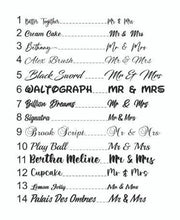 1 Better Together......Mr & Mrs
2 Cream Cake......Mr & Mrs
3 Bethany......Mr & Mrs
4 Alex Brush......Mr & Mrs
5 Black Sword......Mr & Mrs
6 WALTOGRAPH......MR & MRS
7 Gillian Dreams......Mr & Mrs
8 Signatra......Mr & Mrs
9 Brook Script......Mr & Mrs
10 Play Ball......Mr & Mrs
11 Bertha Meline......Mr & Mrs
12 Cupcake......Mr & Mrs
13 Lemon Jelly......Mr & Mrs
14 Palais Des Ombres......Mr & Mrs